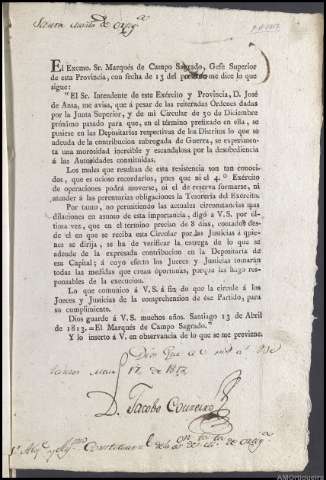 El Excmo. Sr. Marqués de Campo Sagrado, Gefe Superior
de esta Provincia, con fecha de 13 del me dice lo que
sigue:
"El Sr. Intendente de este Exército y Provincia, D. José
de Ansa, me avisa, que á pesar de las reiteradas Ordenes dadas
por la Junta Superior, y de mi Circular de 30 de Diciembre
próximo pasado para que, en el término prefixado en ella, se
pusiese en las Depositarías respectivas de los Distritos lo que se
adeuda de la contribucion subrogada de Guerra, se experimen-
ta una morosidad increible y escandalosa por la desobediencia
á las Autoridades constituidas.
Los males que resultan de esta resistencia son tan conoci-
dos, que es ocioso recordarlos, pues que ni el 4.º Exército
de operaciones podrá moverse, ni el de reserva formarse, ni
atender á las perentorias obligaciones la Tesorería del Exército.
Por tanto, no permitiendo las actuales circunstancias mas
dilaciones en asunto de esta importancia, digo á V.S. por úl-
tima vez, que en el termino preciso de 8 dias, contados des-
de el en que se reciba esta Circular por las Justicias á quie-
nes se dirija, se ha de verificar la entrega de lo que se
adeude de la expresada contribucion en la Depositaría de
esa Capital; á cuyo efecto los Jueces y Justicias tomarán
todas las medidas que crean oportunas, porque les hago res-
ponsables de la execucion.
Lo que comunico á V.S. á fin de que la circule á los
Jueces y Justicias de la comprehension de ese Partido, para
su cumplimiento.
Dios guarde á V.S. muchos años. Santiago 13 de Abril
de 1813.=El Marqués de Campo Sagrado."
Y lo inserto á V. en observancia de lo que se me previene.
Dios gue a V
de 1813
D. Jacobo
AMOrtigueira